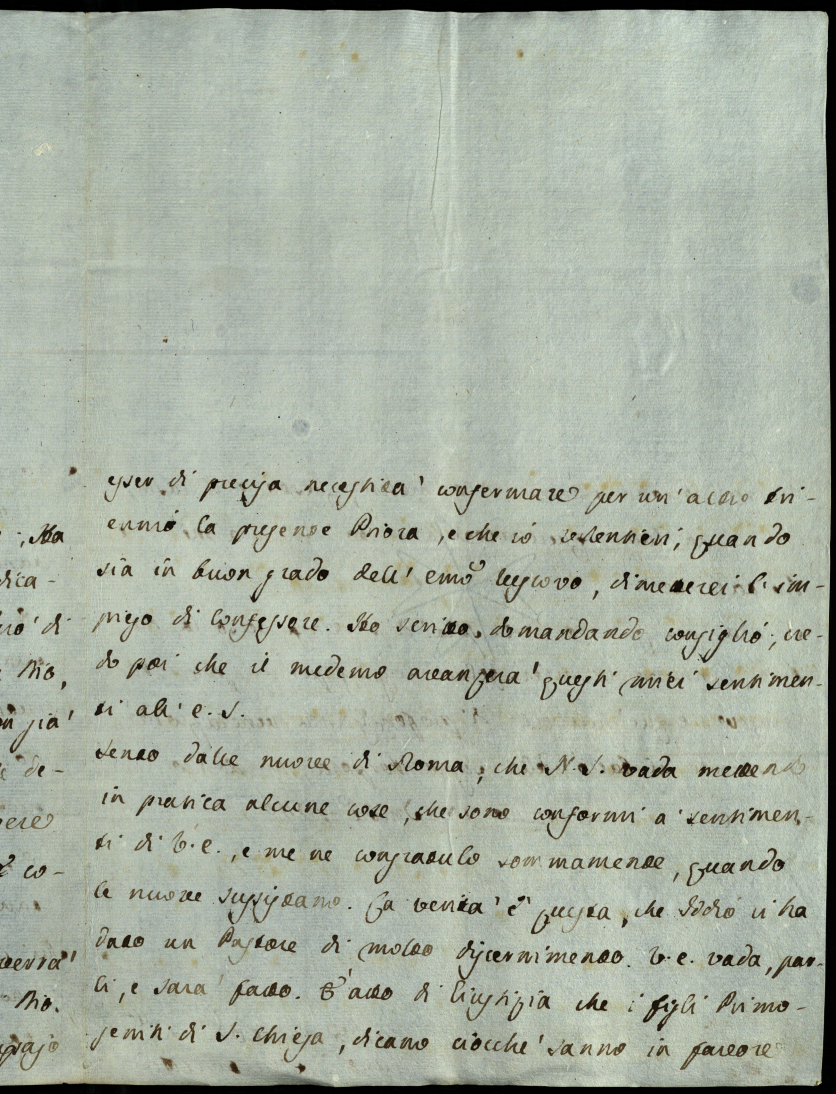 esser di precisa necessità confermare per un'altro tri-
ennio la presente Priora, e che io volentieri, quando
sia in buon grado dell'emo Vescovo, dimetterei l'im-
piego di Confessore. Ho scritto, domandando consiglio; cre-
do poi che il medemo avanzera' questi miei sentimen-
ti all'e. S.
Sento dalle nuove di Roma, che N. S. vada mettendo
in pratica alcune cose, che sono conformi a' sentimen-
ti di V. e., e me ne congratulo sommamente, quando
le nuove sussistano. La verita' e' questa, che Iddio ci ha
dato un Pastore di molto discernimento. V. e. vada, par-
li, e sara' fatto. E' atto di Giustizia che i figli Primo-
jeniti di S. Chiesa, dicano ciocche' sanno in favore
; Ha
dica-
di
Dio,
già'
de-
co-
verra'
Dio.